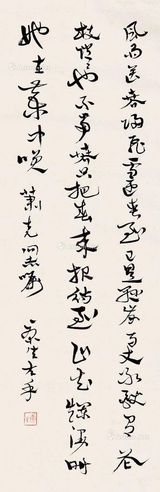 风雨送春归飞雪迎春到已是悬崖百丈冰犹有花
枝俏俏也不争春只把春来报待到山花烂漫时
她在丛中笑 萧克同志嘱 左手